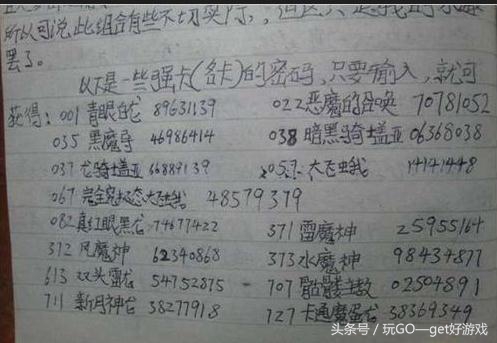 所以可说,此组合有些不切实际,
罢了。
以下是一些强卡(各卡)的密码,只要输入,就可
获得:001 青眼白龙 89631139 022 恶魔的召唤 70781052
035 黑魔导 46986414 038 暗黑骑士盖亚 06368038
037 龙骑士盖亚 66889139 057 大飞虫我 14141448
067 完全究极态大飞虫我 48579379
082 真红眼黑龙 74677422 371 雷魔神 25955164
372 风魔神 62340868 373 水魔神 98434877
613 双头雷龙 54752875 707 骷髅主教 02504891
711 新月神龙 38277918 727 卡通魔蛋龙 38369349
头条号 / 玩GO—get好游戏